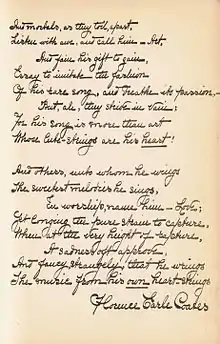 And mortals, as they toil, apart,
Listen with awe, and call him — Art,
And fain his gift to gain,
Essay to imitate the fashion
Of his rare song, and breathe its passion,—
But ah, they strive in vain;
For his song is more than art
Whose lute-strings are his heart!
And others, unto whom he wings
The sweetest melodies he sings,
In worship, name him — Love;
Yet longing the pure strain to capture,
When at the very height of rapture,
A sadness oft approve,
And fancy strangely, that he wrings
The music from his own heart-strings
Florence Earle Coates